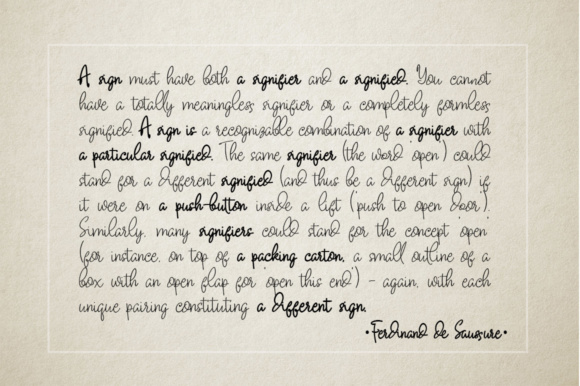 A sign must have both a signifier and a signified. You cannot
have a totally meaningless signifier or a completely formless
signified. A sign is a recognizable combination of a signifier with
a particular signified. The same signifier (the word 'open') could
stand for a different signified (and thus be a different sign) if
it were on a push-button inside a lift ('push to open door').
Similarly, many signifiers could stand for the concept 'open'
(for instance, on top of a packing carton, a small outline of a
box with an open flap for 'open this end') - again, with each
unique pairing constituting a different sign.
•Ferdinand de Saussure•